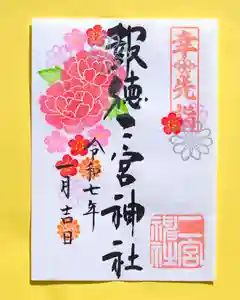 幸先詣
報徳二宮神社
令和七年
一月吉日
二宮
神社